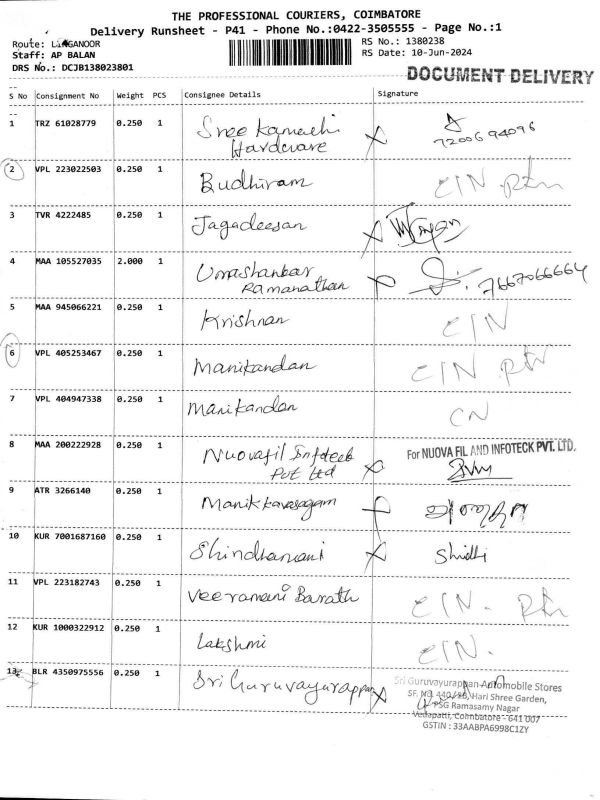 THE PROFESSIONAL COURIERS, COIMBATORE
Delivery Runsheet - P41 - Phone No.:0422-3505555 - Page No.:1
Route: LINGANOOR
RS No.: 1380238
Staff: AP BALAN
RS Date: 10-Jun-2024
DRS No.: DCJB138023801
DOCUMENT DELIVERY
S No Consignment No Weight PCS Consignee Details Signature
1 TRZ 61028779 0.250 1 Sree Kamachi
Hardware X 7200694096
2 VPL 223022503 0.250 1 Budhiram CIN. Rtn
3 TVR 4222485 0.250 1 Jagadeesan X
4 MAA 105527035 2.000 1 Umashankar
Ramanathan X 7667066664
5 MAA 945066221 0.250 1 Krishnan CIN
6 VPL 405253467 0.250 1 Manikandan CIN Rtn
7 VPL 404947338 0.250 1 Manikandan CN
8 MAA 200222928 0.250 1 Nuovafil Infotech
Pvt Ltd X For NUOVA FIL AND INFOTECK PVT. LTD.
9 ATR 3266140 0.250 1 Manikkavasagam
10 KUR 7001687160 0.250 1 Shindhamani X Shidhi
11 VPL 223182743 0.250 1 Veeramani Barath CIN. Rtn
12 KUR 1000322912 0.250 1 Lakshmi CIN.
13 BLR 4350975556 0.250 1 Sri Guruvayurappan X
Sri Guruvayurappan Automobile Stores
SF. No. 440/9B, Hari Shree Garden,
PSG Ramasamy Nagar
Vedapatti, Coimbatore - 641 007
GSTIN : 33AABPA6998C1ZY